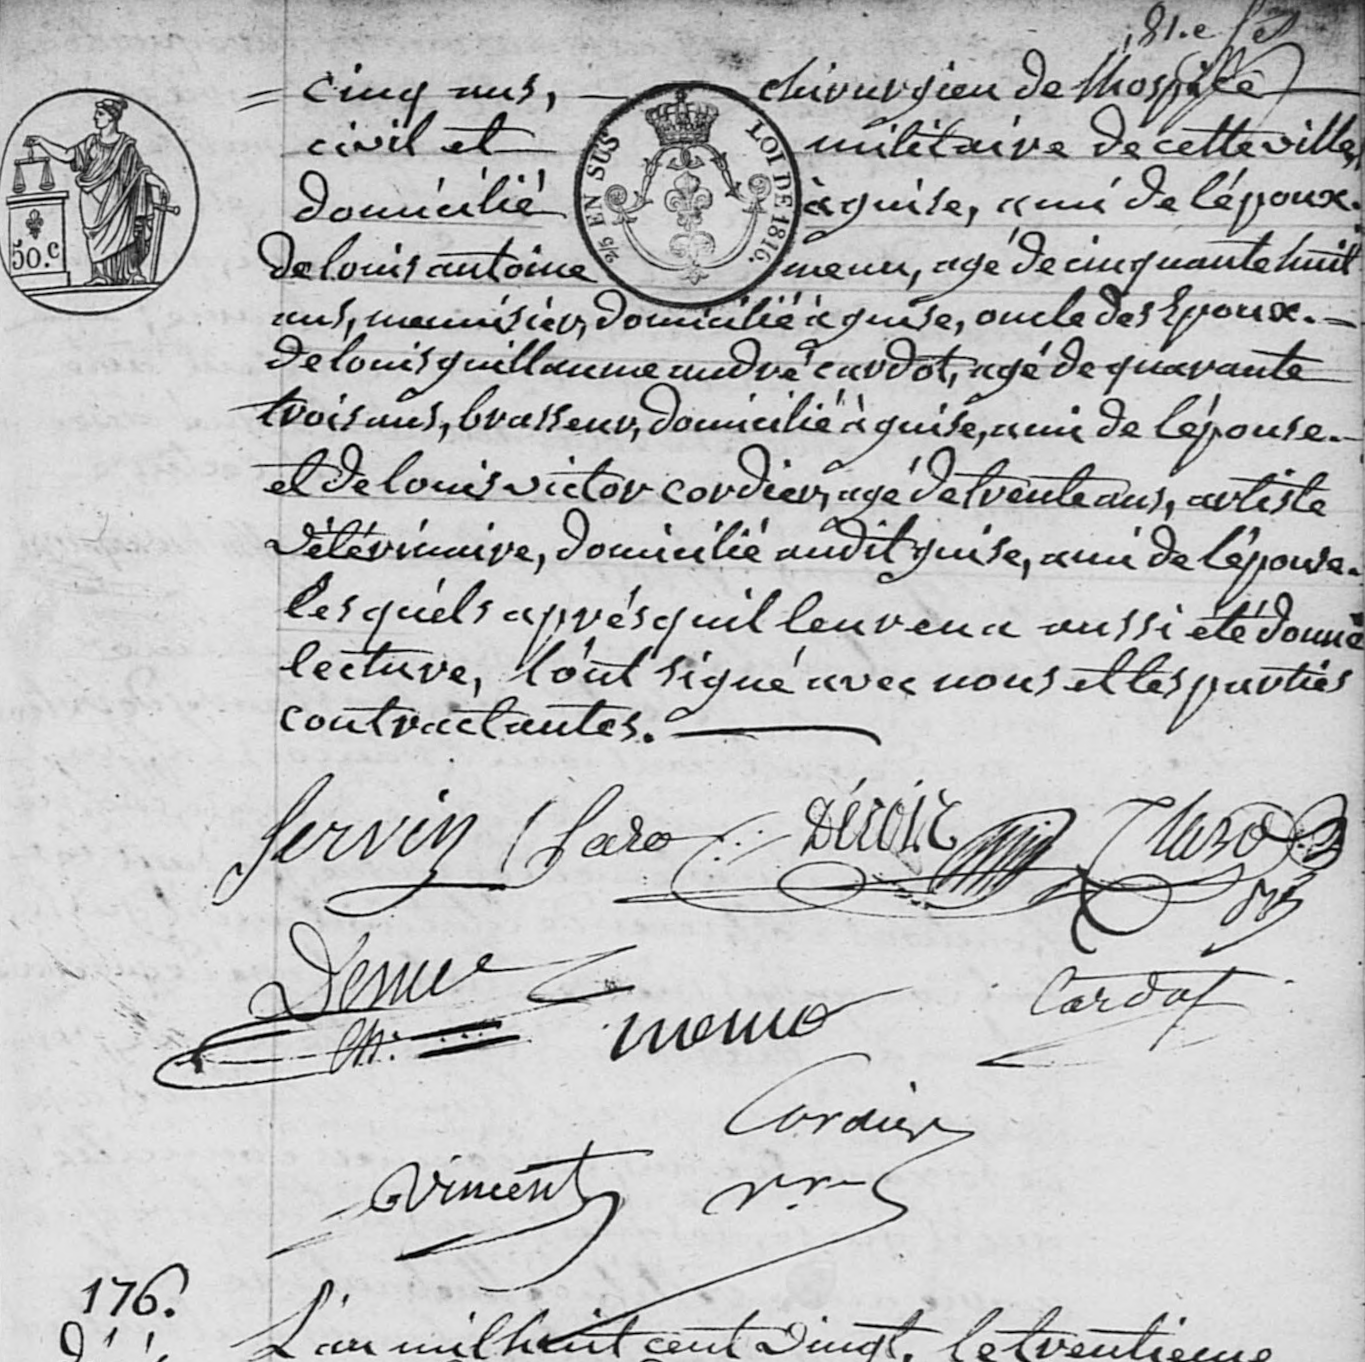 81.e
cinq ans, chirurgien de l'hospice
civil et militaire de cette ville,
domicilié à guise, ami de l'époux.
de louis antoine menu, agé de cinquante huit
ans, menuisier, domicilié à guise, oncle des Epoux.
de louis guillaume andré cardot, agé de quarante
trois ans, brasseur, domicilié à guise, ami de l'épouse.
et de louis victor cordier, agé de trente ans, artiste
vétérinaire, domicilié audit guise, ami de l'épouse.
les quels après qu'il leur en a aussi été donné
lecture, l'ont signé avec nous et les parties
contractantes.
50.c
2/5 EN SUS
LOI DE 1816.
Servin
menu
Cardot
Cordier
Vincent
176.
L'an mil huit cent vingt, le trentieme